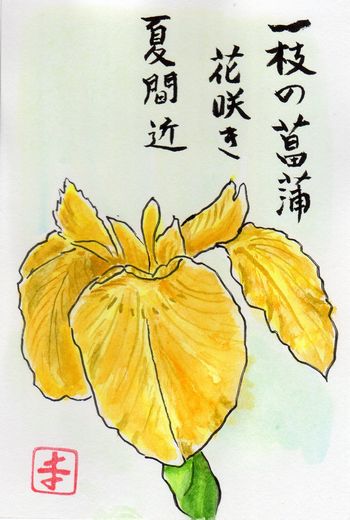 一枝の菖蒲
花咲き
夏間近